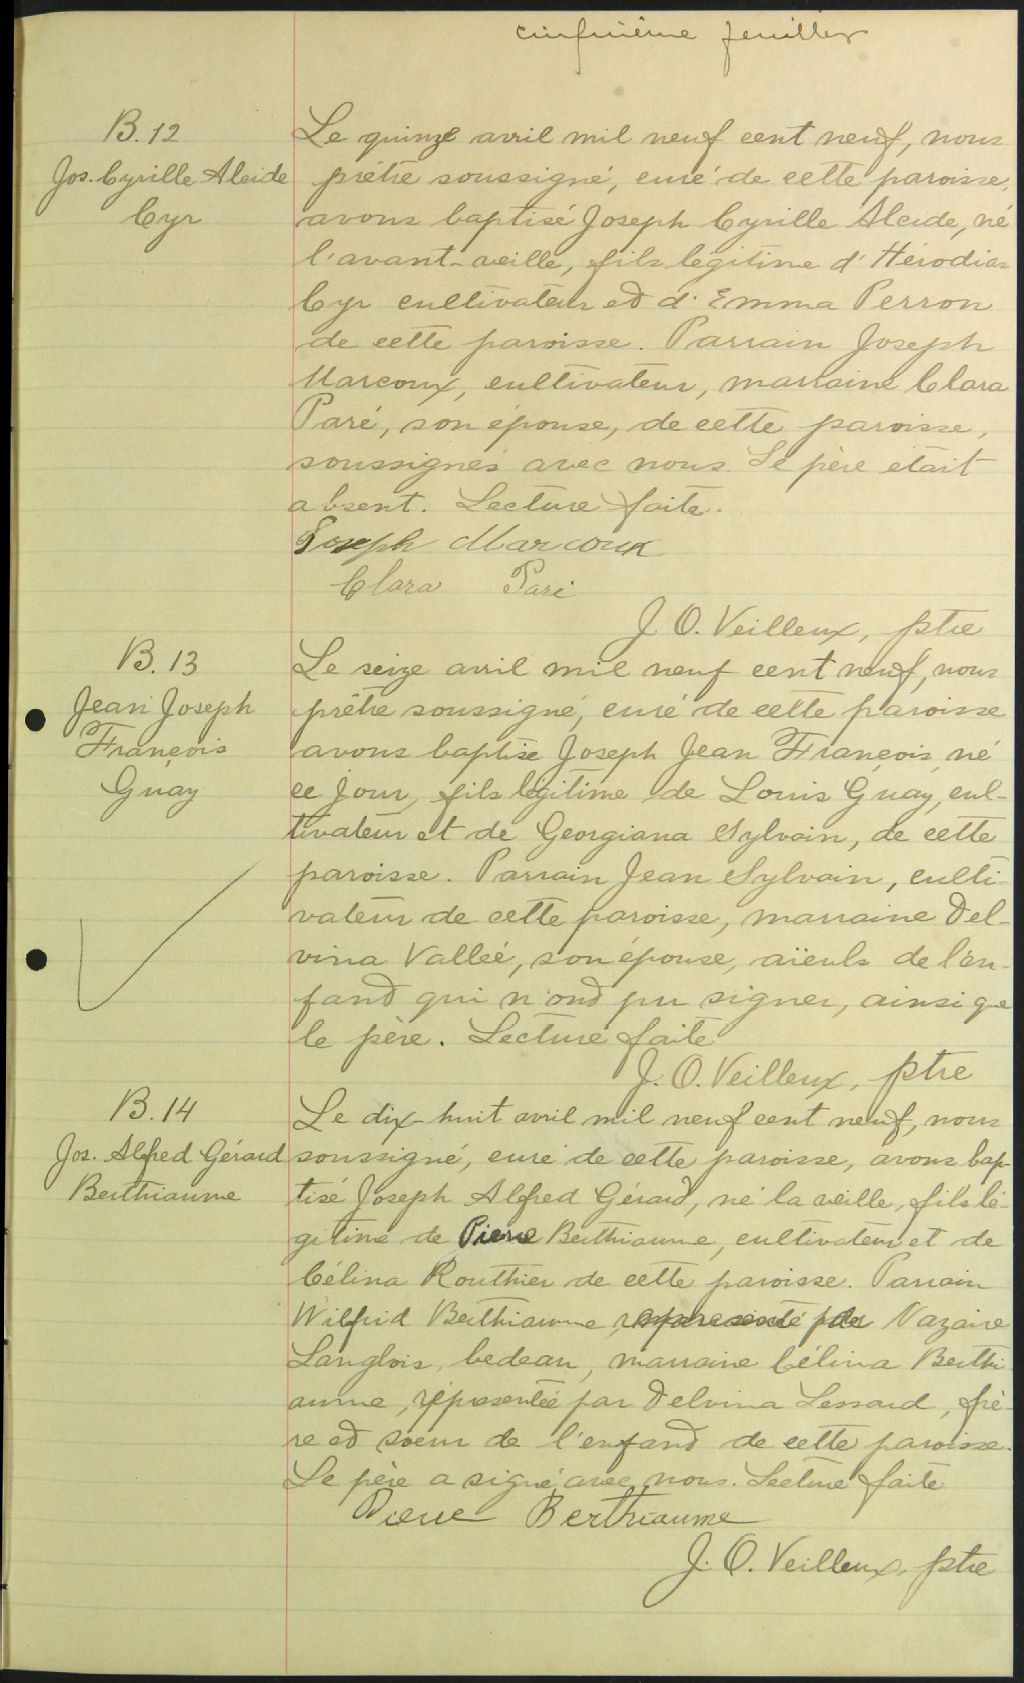 cinquième feuillet
B. 12
Jos. Cyrille Alcide
Cyr
Le quinze avril mil neuf cent neuf, nous
prêtre soussigné, curé de cette paroisse,
avons baptisé Joseph Cyrille Alcide, né
l'avant-veille, fils légitime d'Hérodias
Cyr cultivateur et d'Emma Perron
de cette paroisse. Parrain Joseph
Marcoux, cultivateur, marraine Clara
Paré, son épouse, de cette paroisse,
soussignés avec nous. Le père était
absent. Lecture faite.
Joseph Marcoux
Clara Paré
J. O. Veilleux, ptre
B. 13
Jean Joseph
François
Guay
Le seize avril mil neuf cent neuf, nous
prêtre soussigné, curé de cette paroisse
avons baptisé Joseph Jean François, né
ce jour, fils légitime de Louis Guay, cul-
tivateur et de Georgiana Sylvain, de cette
paroisse. Parrain Jean Sylvain, culti-
vateur de cette paroisse, marraine Del-
vina Vallée, son épouse, aïeuls de l'en-
fant qui n'ont pu signer, ainsi que
le père. Lecture faite
J. O. Veilleux, ptre
B. 14
Jos. Alfred Gérard
Berthiaume
Le dix-huit avril mil neuf cent neuf, nous
soussigné, curé de cette paroisse, avons bap-
tisé Joseph Alfred Gérard, né la veille, fils lé-
gitime de Pierre Berthiaume, cultivateur et de
Célina Routhier de cette paroisse. Parrain
Wilfrid Berthiaume, représenté par Nazaire
Langlois, bedeau, marraine Célina Berthi-
aume, représentée par Delvina Lessard, frè-
re et soeur de l'enfant de cette paroisse.
Le père a signé avec nous. Lecture faite
Pierre Berthiaume
J. O. Veilleux, ptre